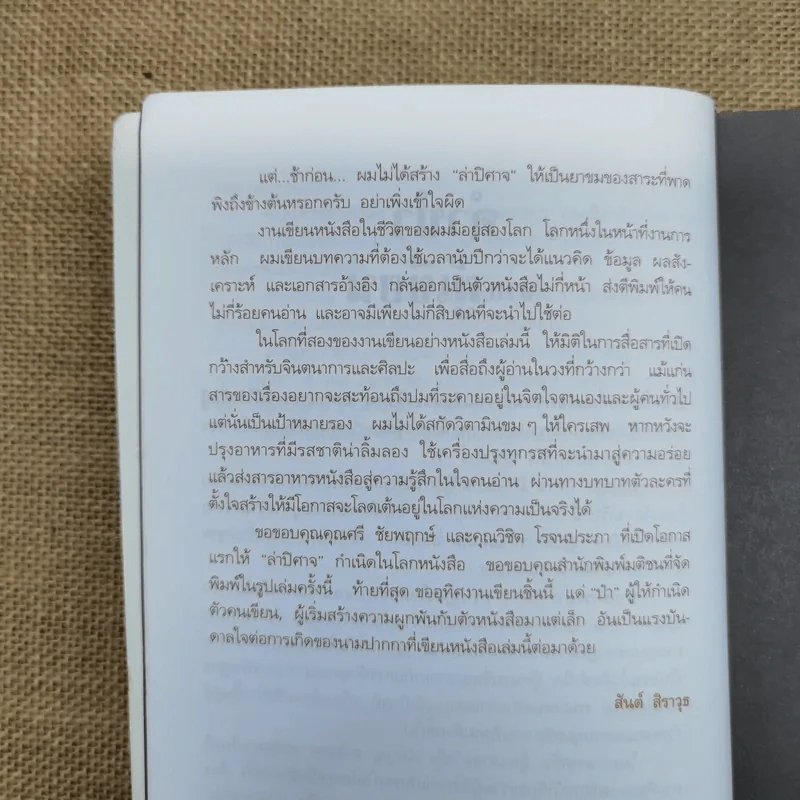 แต่...ช้าก่อน... ผมไม่ได้สร้าง “ล่าปิศาจ” ให้เป็นยาขมของสาระที่พาด
พิงถึงข้างต้นหรอกครับ อย่าเพิ่งเข้าใจผิด
งานเขียนหนังสือในชีวิตของผมมีอยู่สองโลก โลกหนึ่งในหน้าที่งานการ
หลัก ผมเขียนบทความที่ต้องใช้เวลานับปีกว่าจะได้แนวคิด ข้อมูล ผลสัง-
เคราะห์ และเอกสารอ้างอิง กลั่นออกเป็นตัวหนังสือไม่กี่หน้า ส่งตีพิมพ์ให้คน
ไม่กี่ร้อยคนอ่าน และอาจมีเพียงไม่กี่สิบคนที่จะนำไปใช้ต่อ
ในโลกที่สองของงานเขียนอย่างหนังสือเล่มนี้ ให้มิติในการสื่อสารที่เปิด
กว้างสำหรับจินตนาการและศิลปะ เพื่อสื่อถึงผู้อ่านในวงที่กว้างกว่า แม้แก่น
สารของเรื่องอยากจะสะท้อนถึงปมที่ระคายอยู่ในจิตใจตนเองและผู้คนทั่วไป
แต่นั่นเป็นเป้าหมายรอง ผมไม่ได้สกัดวิตามินขม ๆ ให้ใครเสพ หากหวังจะ
ปรุงอาหารที่มีรสชาติน่าลิ้มลอง ใช้เครื่องปรุงทุกรสที่จะนำมาสู่ความอร่อย
แล้วส่งสารอาหารหนังสือสู่ความรู้สึกในใจคนอ่าน ผ่านทางบทบาทตัวละครที่
ตั้งใจสร้างให้มีโอกาสจะโลดเต้นอยู่ในโลกแห่งความเป็นจริงได้
ขอขอบคุณคุณศรี ชัยพฤกษ์ และคุณวิชิต โรจนประภา ที่เปิดโอกาส
แรกให้ “ล่าปิศาจ” กำเนิดในโลกหนังสือ ขอขอบคุณสำนักพิมพ์มติชนที่จัด
พิมพ์ในรูปเล่มครั้งนี้ ท้ายที่สุด ขออุทิศงานเขียนชิ้นนี้ แด่ “ป๋า” ผู้ให้กำเนิด
ตัวคนเขียน, ผู้เริ่มสร้างความผูกพันกับตัวหนังสือมาแต่เล็ก อันเป็นแรงบัน-
ดาลใจต่อการเกิดของนามปากกาที่เขียนหนังสือเล่มนี้ต่อมาด้วย
สันต์ สิราวุธ